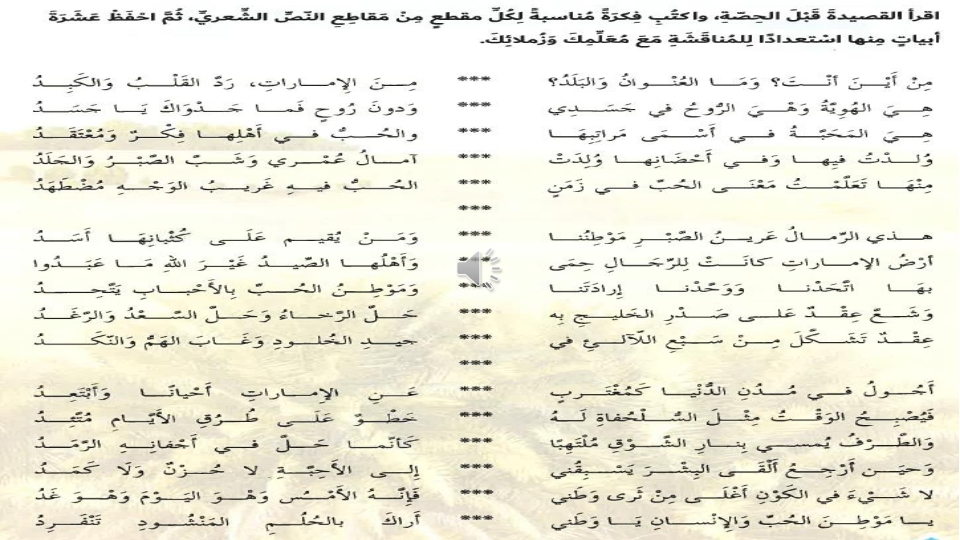 اقرأ القصيدةَ قَبْلَ الحِصّةِ، واكتُبِ فِكرَةً مُناسبةً لِكُلِّ مقطعٍ مِنْ مَقاطِعِ النّصِّ الشِّعريِّ، ثُمَّ احْفَظْ عَشَرَةَ
أبياتٍ مِنها اسْتعدادًا لِلمُناقَشَةِ مَعَ مُعَلِّمِكَ وَزُملائِكَ.
مِنْ أَيْنَ أَنْتَ؟ وَمَا العُنْوانُ وَالبَلَدُ؟ *** مِنَ الإماراتِ، رَدَّ القَلْبُ وَالكَبِدُ
هِيَ الهُوِيَّةُ وَهْيَ الرُّوحُ في جَسَدِي *** وَدونَ رُوحٍ فَما جَدْوَاكَ يَا جَسَدُ
هِيَ المَحَبَّةُ في أَسْمَى مَراتِبِهَا *** والحُبُّ في أَهْلِها فِكْرٌ وَمُعْتَقَدُ
وُلِدْتُ فِيها وَفي أَحْضَانِها وُلِدَتْ *** آمالُ عُمْري وَشَبَّ الصَّبْرُ وَالجَلَدُ
مِنْهَا تَعَلَّمْتُ مَعْنَى الحُبِّ في زَمَنٍ *** الحُبُّ فيهِ غَريبُ الوَجْهِ مُضْطَهَدُ
***
هذي الرِّمالُ عَرينُ الصَّبْرِ مَوْطِنُنا *** وَمَنْ يُقيم عَلَى كُثْبانِهَا أَسَدُ
أرْضُ الإماراتِ كانَتْ لِلرِّجَالِ حِمَى *** وَأَهْلُها الصِّيدُ غَيْرَ اللهِ مَا عَبَدُوا
بِهَا اتَّحَدْنا وَوَحَّدْنا إرادَتَنا *** وَمَوْطِنُ الحُبِّ بِالأَحْبابِ يَتَّحِدُ
وَشَعَّ عِقْدٌ عَلى صَدْرِ الخَليجِ بِه *** حَلَّ الرَّخاءُ وَحَلَّ السَّعْدُ وَالرَّغَدُ
عِقْدٌ تَشَكَّلَ مِنْ سَبْعِ اللّآلئِ في *** جيدِ الخُلودِ وَغَابَ الهَمُّ وَالنَّكَدُ
***
أَجُولُ في مُدُنِ الدُّنْيا كَمُغْتَرِبٍ *** عَنِ الإماراتِ أَحْيانًا وَأَبْتَعِدُ
فَيُصْبِحُ الوَقْتُ مِثْلَ السُّلْحُفاةِ لَهُ *** خَطْوٌ عَلَى طُرُقِ الأَيّامِ مُتَّئِدُ
وَالطَّرْفُ يُمسي بِنارِ الشَّوْقِ مُلْتَهِبًا *** كَأنّما حَلَّ في أَجْفانِهِ الرَّمَدُ
وَحينَ أَرْجِعُ أَلْقَى البِشْرَ يَسْبِقُني *** إلى الأَحِبَّةِ لا حُزْنٌ وَلَا كَمَدُ
لا شَيْءَ في الكَوْنِ أَغْلَى مِنْ ثَرى وَطَني *** فَإِنَّهُ الأَمْسُ وَهْوَ اليَوْمَ وَهْوَ غَدُ
يا مَوْطِنَ الحُبِّ وَالإنْسانِ يَا وَطَني *** أراكَ بالحُلُمِ المَنْشُودِ تَنْفَرِدُ